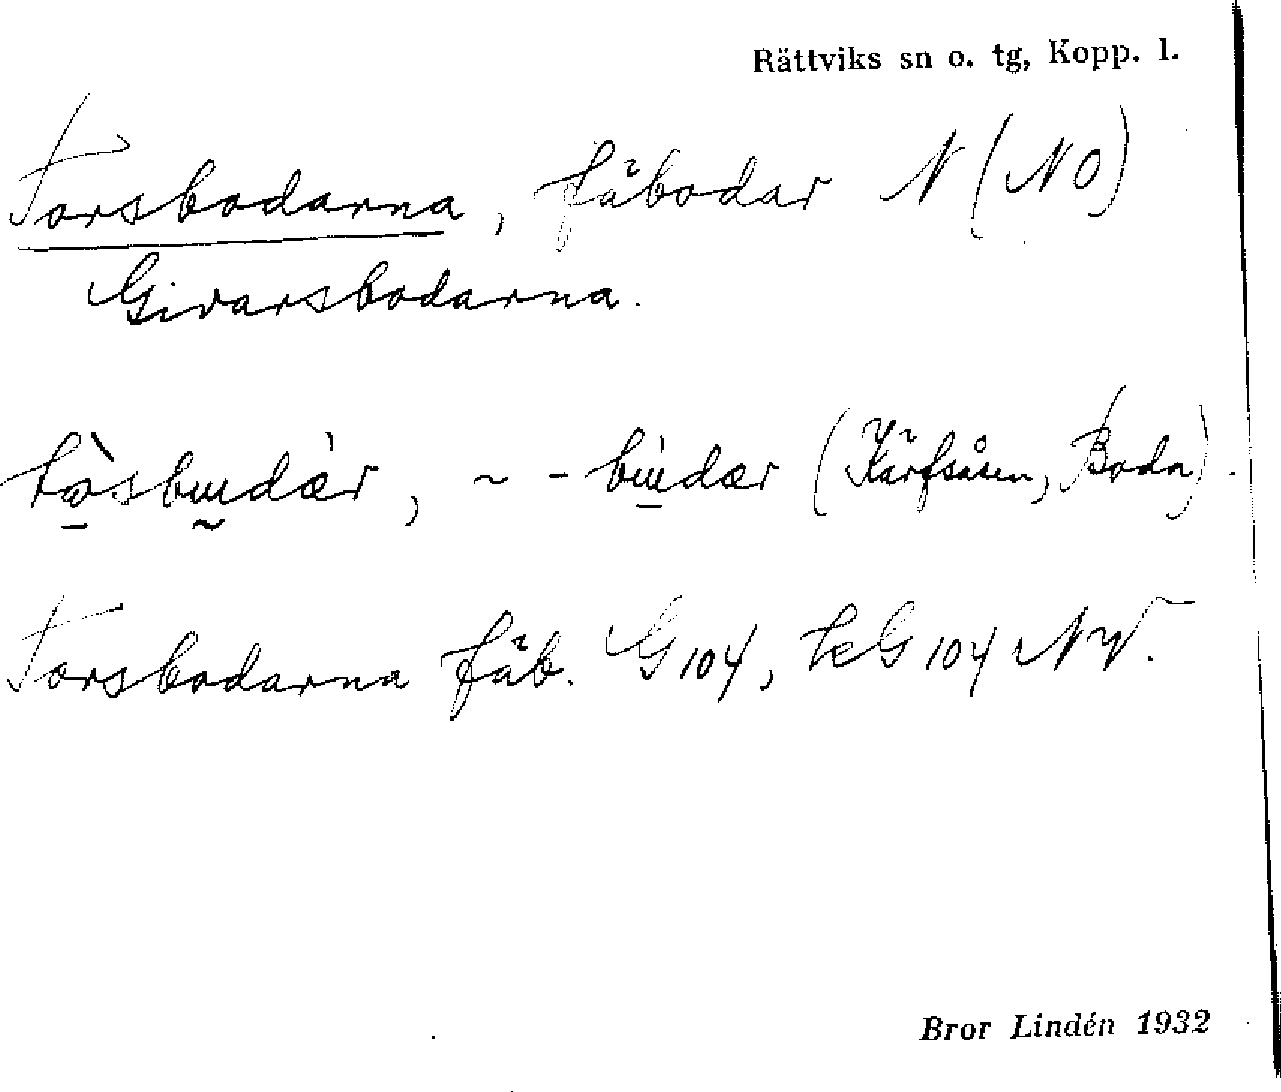 Rättviks sn o. tg, Kopp. l.
Torsbodarna, fäbodar N (NO)
Givarsbodarna.
(Kärfsåsen, Boda).
Torsbodarna fäb. G104, keG104 NV.
Bror Lindén 1932